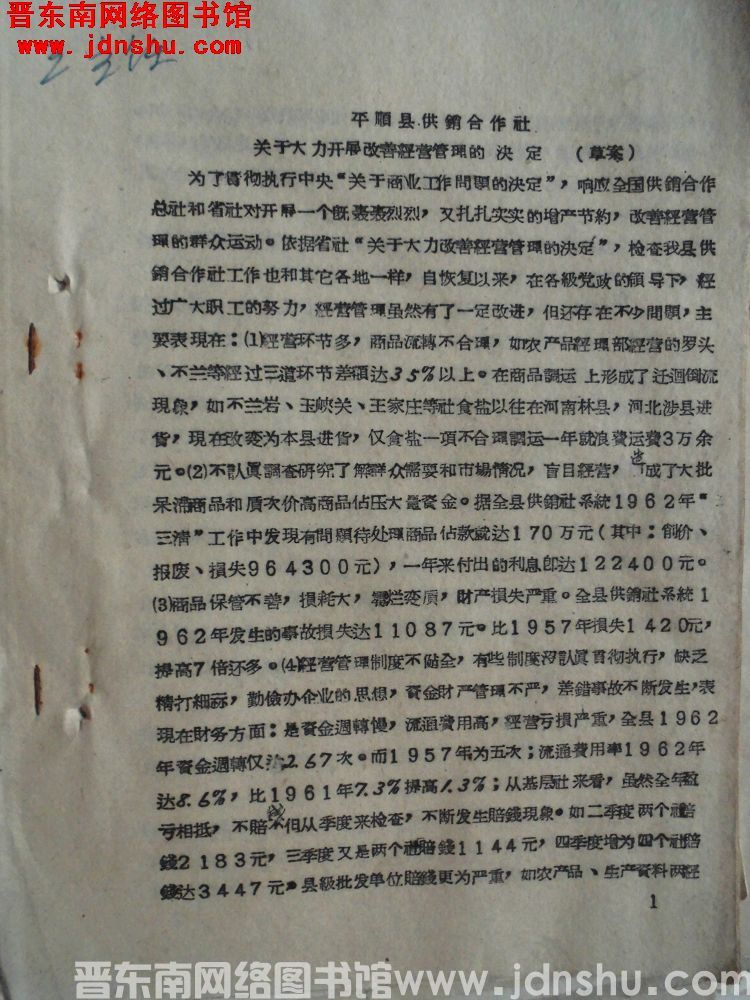 晋东南网络图书馆
www.jdnshu.com
平順县供銷合作社
关于大力开展改善經营管理的 决 定 (草案)
为了貫彻执行中央“关于商业工作問題的决定”，响应全国供銷合作
总社和省社对开展一个既轰轰烈烈，又扎扎实实的增产节約，改善經营管
理的群众运动。依据省社“关于大力改善經营管理的决定”，檢查我县供
銷合作社工作也和其它各地一样，自恢复以来，在各級党政的領导下，經
过广大职工的努力，經营管理虽然有了一定改进，但还存在不少問題，主
要表現在：⑴經营环节多，商品流轉不合理，如农产品經理部經营的罗头
、不兰等經过三道环节差額达35%以上。在商品調运 上形成了迂迴倒流
現象，如不兰岩、玉峡关、王家庄等社食盐以往在河南林县，河北涉县进
貨，現在改变为本县进貨，仅食盐一項不合理調运一年就浪費运費3万余
元。⑵不認眞調查研究了解群众需要和市場情况，盲目經营，造成了大批
呆滯商品和质次价高商品佔压大量資金。据全县供銷社系統1962年“
三清”工作中发現有問題待处理商品佔款就达170万元(其中：削价、
报废、損失964300元)，一年来付出的利息即达122400元。
⑶商品保管不善，損耗大，霉烂变质，財产損失严重。全县供銷社系統1
962年发生的事故損失达11087元。比1957年損失1420元，
提高7倍还多。⑷經营管理制度不健全，有些制度沒認眞貫彻执行，缺乏
精打細祘，勤儉办企业的思想，資金財产管理不严，差錯事故不断发生，表
現在財务方面：是資金週轉慢，流通費用高，經营亏損严重，全县1962
年資金週轉仅达2.67次。而1957年为五次；流通費用率1962年
达8.6%，比1961年7.3%提高1.3%；从基层社来看，虽然全年盈
亏相抵，不賠錢但从季度来检查，不断发生賠錢現象。如二季度两个社賠
錢2183元，三季度又是两个社賠錢1144元，四季度增为四个社賠
錢达3447元。县級批发单位賠錢更为严重，如农产品、生产資料两經
1
晋东南网络图书馆www.jdnshu.com